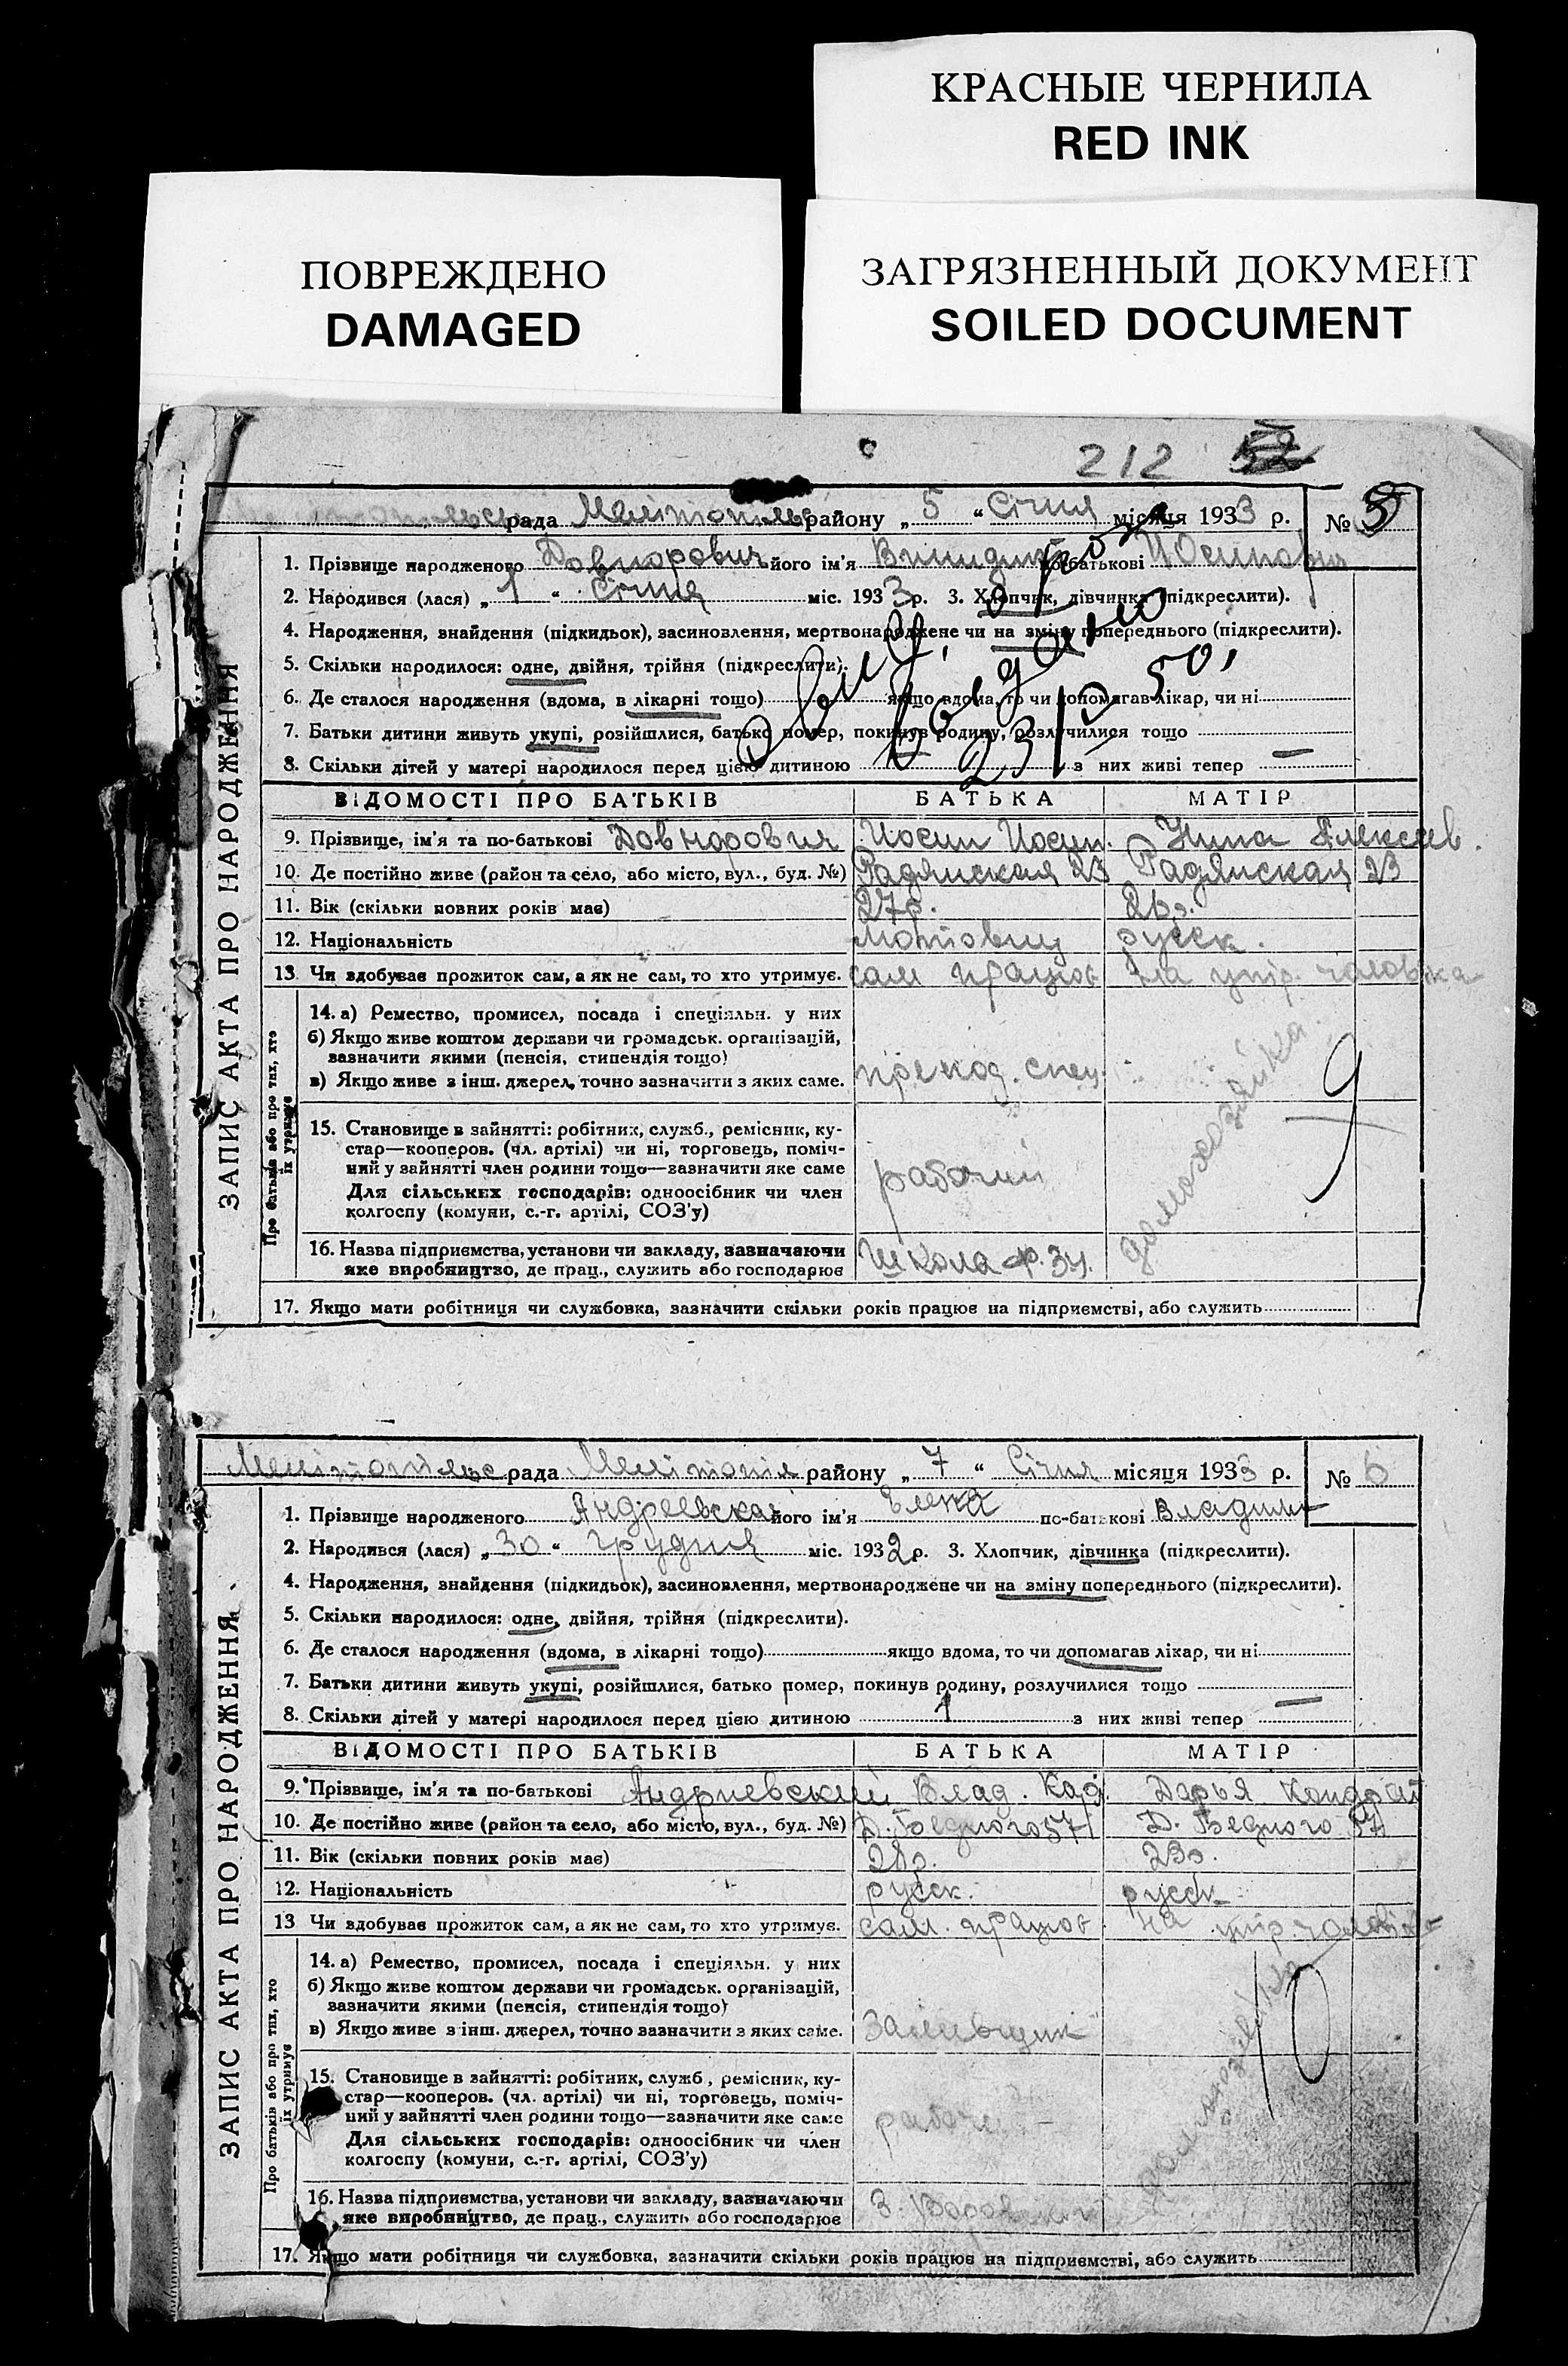 КРАСНЫЕ ЧЕРНИЛА
RED INK
ПОВРЕЖДЕНО
DAMAGED
ЗАГРЯЗНЕННЫЙ ДОКУМЕНТ
SOILED DOCUMENT
212 52
рада Мелітопільс району „ 5 “ Січня місяця 1933 р. № 5
ЗАПИС АКТА ПРО НАРОДЖЕННЯ
1. Прізвище народженого Довнорович його ім'я по-батькові Иосипович
2. Народився (лася) „ 1 “ Січня міс. 1933 р. 3. Хлопчик, дівчинка (підкреслити).
4. Народження, знайдення (підкидьок), засиновлення, мертвонароджене чи на зміну попереднього (підкреслити).
5. Скільки народилося: одне, двійня, трійня (підкреслити).
6. Де сталося народження (вдома, в лікарні тощо) якщо вдома, то чи допомагав лікар, чи ні
7. Батьки дитини живуть укупі, розійшлися, батько помер, покинув родину, розлучилися тощо
8. Скільки дітей у матері народилося перед цією дитиною з них живі тепер —
выдано
23/V 50,
ВІДОМОСТІ ПРО БАТЬКІВ БАТЬКА МАТІР
9. Прізвище, ім'я та по-батькові Довнорович Иосип Иосип. Нина Алексеев.
10. Де постійно живе (район та село, або місто, вул., буд. №) Радянская 23 Радянская 23
11. Вік (скільки повних років має) 27 р. 26 р.
12. Національність русск.
13. Чи здобував прожиток сам, а як не сам, то хто утримує. сам працює на утр. чоловіка
Про батьків або про тих, хто їх утримує
14. а) Ремество, промисел, посада і спеціяльн. у них
б) Якщо живе коштом держави чи громадськ. організацій,
зазначити якими (пенсія, стипендія тощо)
в) Якщо живе з інш. джерел, точно зазначити з яких саме. препод. спец.
домохозяйка
9
15. Становище в зайнятті: робітник, служб., ремісник, ку-
стар—кооперов. (чл. артілі) чи ні, торговець, поміч-
ний у зайнятті член родини тощо—зазначити яке саме
Для сільських господарів: одноосібник чи член
колгоспу (комуни, с.-г. артілі, СОЗ'у)
рабочий
16. Назва підприємства, установи чи закладу, зазначаючи
яке виробництво, де прац., служить або господарює
Школа ф.зу.
17. Якщо мати робітниця чи службовка, зазначити скільки років працює на підприємстві, або служить
Мелітопільс рада Мелітопіл району „ 7 “ Січня місяця 1933 р. № 6
ЗАПИС АКТА ПРО НАРОДЖЕННЯ
1. Прізвище народженого Андреевская його ім'я Елена по-батькові Владим
2. Народився (лася) „ 30 “ грудня міс. 1932 р. 3. Хлопчик, дівчинка (підкреслити).
4. Народження, знайдення (підкидьок), засиновлення, мертвонароджене чи на зміну попереднього (підкреслити).
5. Скільки народилося: одне, двійня, трійня (підкреслити).
6. Де сталося народження (вдома, в лікарні тощо) якщо вдома, то чи допомагав лікар, чи ні
7. Батьки дитини живуть укупі, розійшлися, батько помер, покинув родину, розлучилися тощо
8. Скільки дітей у матері народилося перед цією дитиною 1 з них живі тепер —
ВІДОМОСТІ ПРО БАТЬКІВ БАТЬКА МАТІР
9. Прізвище, ім'я та по-батькові Андриевский Влад. Дарья Кондрат
10. Де постійно живе (район та село, або місто, вул., буд. №) Д. Бедного 57 Д. Бедного 57
11. Вік (скільки повних років має) 28 р. 23 р.
12. Національність русск. русск
13 Чи здобував прожиток сам, а як не сам, то хто утримує. сам. працює на утр. чоловіка
Про батьків або про тих, хто їх утримує
14. а) Ремество, промисел, посада і спеціяльн. у них
б) Якщо живе коштом держави чи громадськ. організацій,
зазначити якими (пенсія, стипендія тощо)
в) Якщо живе з інш. джерел, точно зазначити з яких саме. заливщик
домохозяйка
10
15. Становище в зайнятті: робітник, служб., ремісник, ку-
стар—кооперов. (чл. артілі) чи ні, торговець, поміч-
ний у зайнятті член родини тощо—зазначити яке саме
Для сільських господарів: одноосібник чи член
колгоспу (комуни, с.-г. артілі, СОЗ'у)
16. Назва підприємства, установи чи закладу, зазначаючи
яке виробництво, де прац., служить або господарює
17. Якщо мати робітниця чи службовка, зазначити скільки років працює на підприємстві, або служить